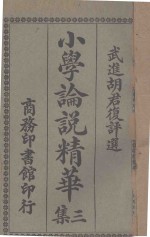 武進胡君復評選
小學論說精華
三集
商務印書館印行